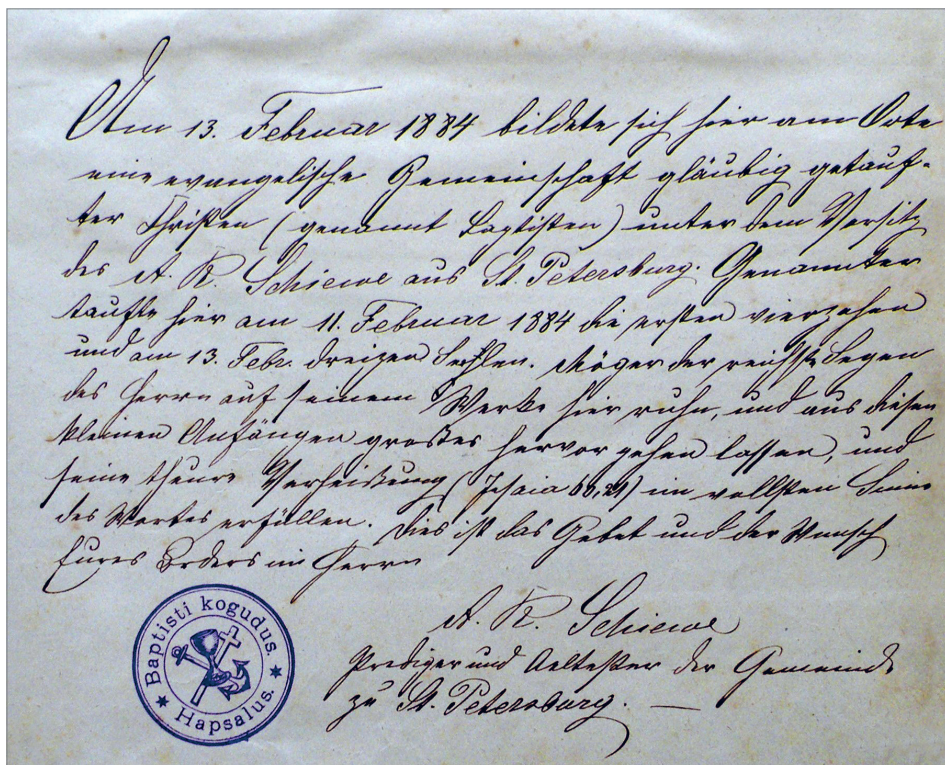 Am 13. Februar 1884 bildete sich hier am Orte
eine evangelische Gemeinschaft gläubig getauf-
ter Christen (genannt Baptisten) unter dem Vorsitz
des A. R. Schiewe aus St. Petersburg. Genannter
taufte hier am 11. Februar 1884 die ersten vierzehen
und am 13. Febr. dreizen Seelen. Möge der reichste Segen
des Herrn auf seinem Werke hier ruhn, und aus diesen
kleinen Anfängen großes hervor gehen lassen, und
seine theure Verheißung (Jesaia 60,) im vollsten Sinne
des Wortes erfüllen. Dies ist das Gebet und der Wunsch
Eures Brders im Herrn
A. R. Schiewe
Prediger und Aeltester der Gemeinde
zu St. Petersburg. —
Baptisti kogudus.
Hapsalus.